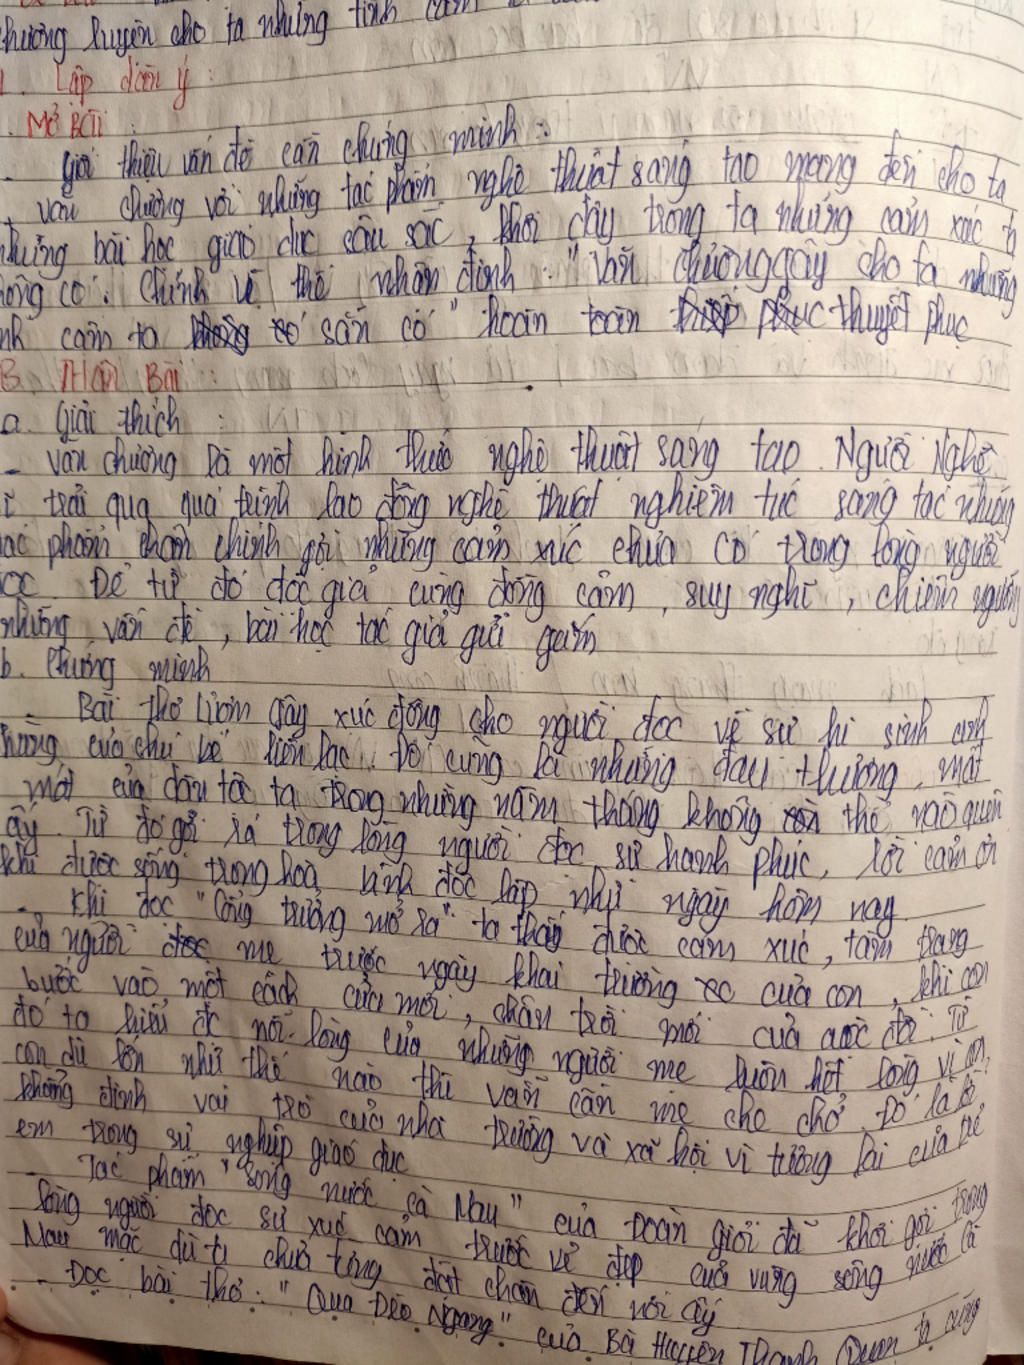 chương luyện cho ta những tình cảm
1. Lập dàn ý :
. Mở Bài :
- giới thiệu vấn đề cần chứng minh :
+ văn chương với những tác phẩm nghệ thuật sáng tạo mang đến cho ta
những bài học giáo dục sâu sắc, khơi dậy trong ta những cảm xúc ta
không có. Chính vì thế nhận định : "Văn chương gây cho ta những
tình cảm ta không có sẵn có" hoàn toàn thuyết phục
B. Thân Bài :
a. Giải thích :
- Văn chương là một hình thức nghệ thuật sáng tạo. Người Nghệ
sĩ trải qua quá trình lao động nghệ thuật nghiêm túc sáng tác những
tác phẩm chân chính gợi những cảm xúc chưa có trong lòng người
đọc. Để từ đó độc giả cùng đồng cảm, suy nghĩ, chiêm ngưỡng
những vấn đề, bài học tác giả gửi gắm
b. Chứng minh
- Bài thơ Lượm gây xúc động cho người đọc về sự hi sinh anh
hùng của chú bé liên lạc. Đó cũng là những đau thương, mất
mát của dân tộc ta trong những năm tháng không thể nào quên
ấy. Từ đó gợi ra trong lòng người đọc sự hạnh phúc, lời cảm ơn
khi được sống trong hoà bình độc lập như ngày hôm nay
- Khi đọc "Cổng trường mở ra" ta thấy được cảm xúc, tâm trạng
của người mẹ trước ngày khai trường của con, khi con
bước vào một cách cửa mới, chân trời mới của cuộc đời. Từ
đó ta hiểu đc nỗi lòng của những người mẹ luôn hết lòng vì con,
con dù lớn như thế nào thì vẫn cần mẹ che chở. Đó là lời
khẳng định vai trò của nhà trường và xã hội vì tương lai của trẻ
em trong sự nghiệp giáo dục
- Tác phẩm "Sông nước Cà Mau" của Đoàn Giỏi đã khơi gợi trong
lòng người đọc sự xúc cảm trước vẻ đẹp của vùng sông nước Cà
Mau mặc dù ta chưa từng đặt chân đến nơi ấy
- Đọc bài thơ : "Qua Đèo Ngang" của Bà Huyện Thanh Quan ta cũng